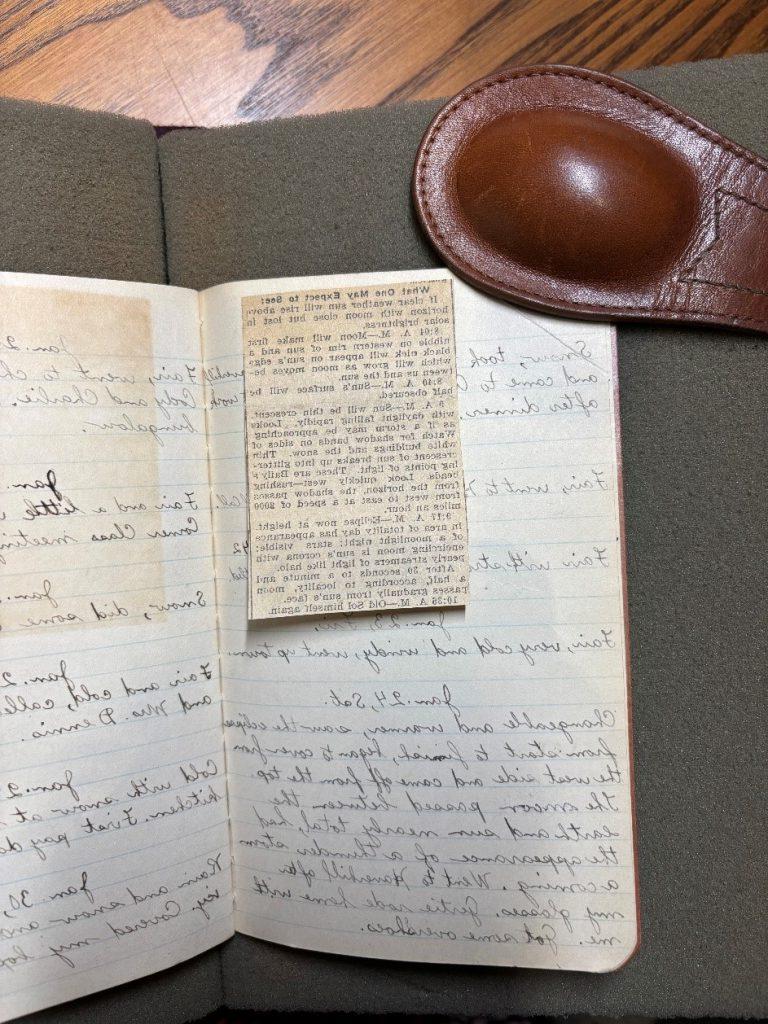 What One May Expect to See:
If clear weather sun will rise above
horizon with moon close but lost in
solar brightness.
8:04 A. M.—Moon will make first
nibble on western rim of sun and a
black nick will appear on sun's edge
which will grow as moon moves be-
tween us and the sun.
8:40 A. M.—Sun's surface will be
half obscured.
9 A. M.—Sun will be thin crescent
with daylight falling rapidly. Looks
as if a storm may be approaching.
Watch for shadow bands on sides of
white buildings and the snow. Thin
crescent of sun breaks up into glitter-
ing points of light. These are Baily's
beads. Look quickly west—rushing
from the horizon, the shadow passes
from west to east at a speed of 2000
miles an hour.
9:17 A. M.—Eclipse now at height.
In area of totality day has appearance
of a moonlight night; stars visible;
encircling moon is sun's corona with
pearly streamers of light like halo.
After 30 seconds to a minute and
a half, according to locality, moon
passes gradually from sun's face.
10:36 A. M.—Old Sol himself again.
Snow, took
and come to work
after dinner.
Fair, went to
Fair with
Jan. 23, Fri.
Fair, very cold and windy, went up town.
Jan. 24, Sat.
Changeable and warmer, saw the eclipse
from start to finish, began to cover from
the west side and came off from the top.
The moon passed between the
earth and sun nearly total, had
the appearance of a thunder storm
a coming. Went to Haverhill after
my glasses. Gertie rode home with
me. Got some overshoes.
Jan. 2
Fair, went to ch
Cody and Charlie.
bungalow.
Jan.
Fair and a little
Comer Class meeting
Jan.
Snow, did some
Jan. 2
Fair and cold, called
and Mrs. Dennis.
Jan. 2
Cold with snow at
kitchen. First pay da
Jan. 30,
Rain and snow and
icy. Covered my